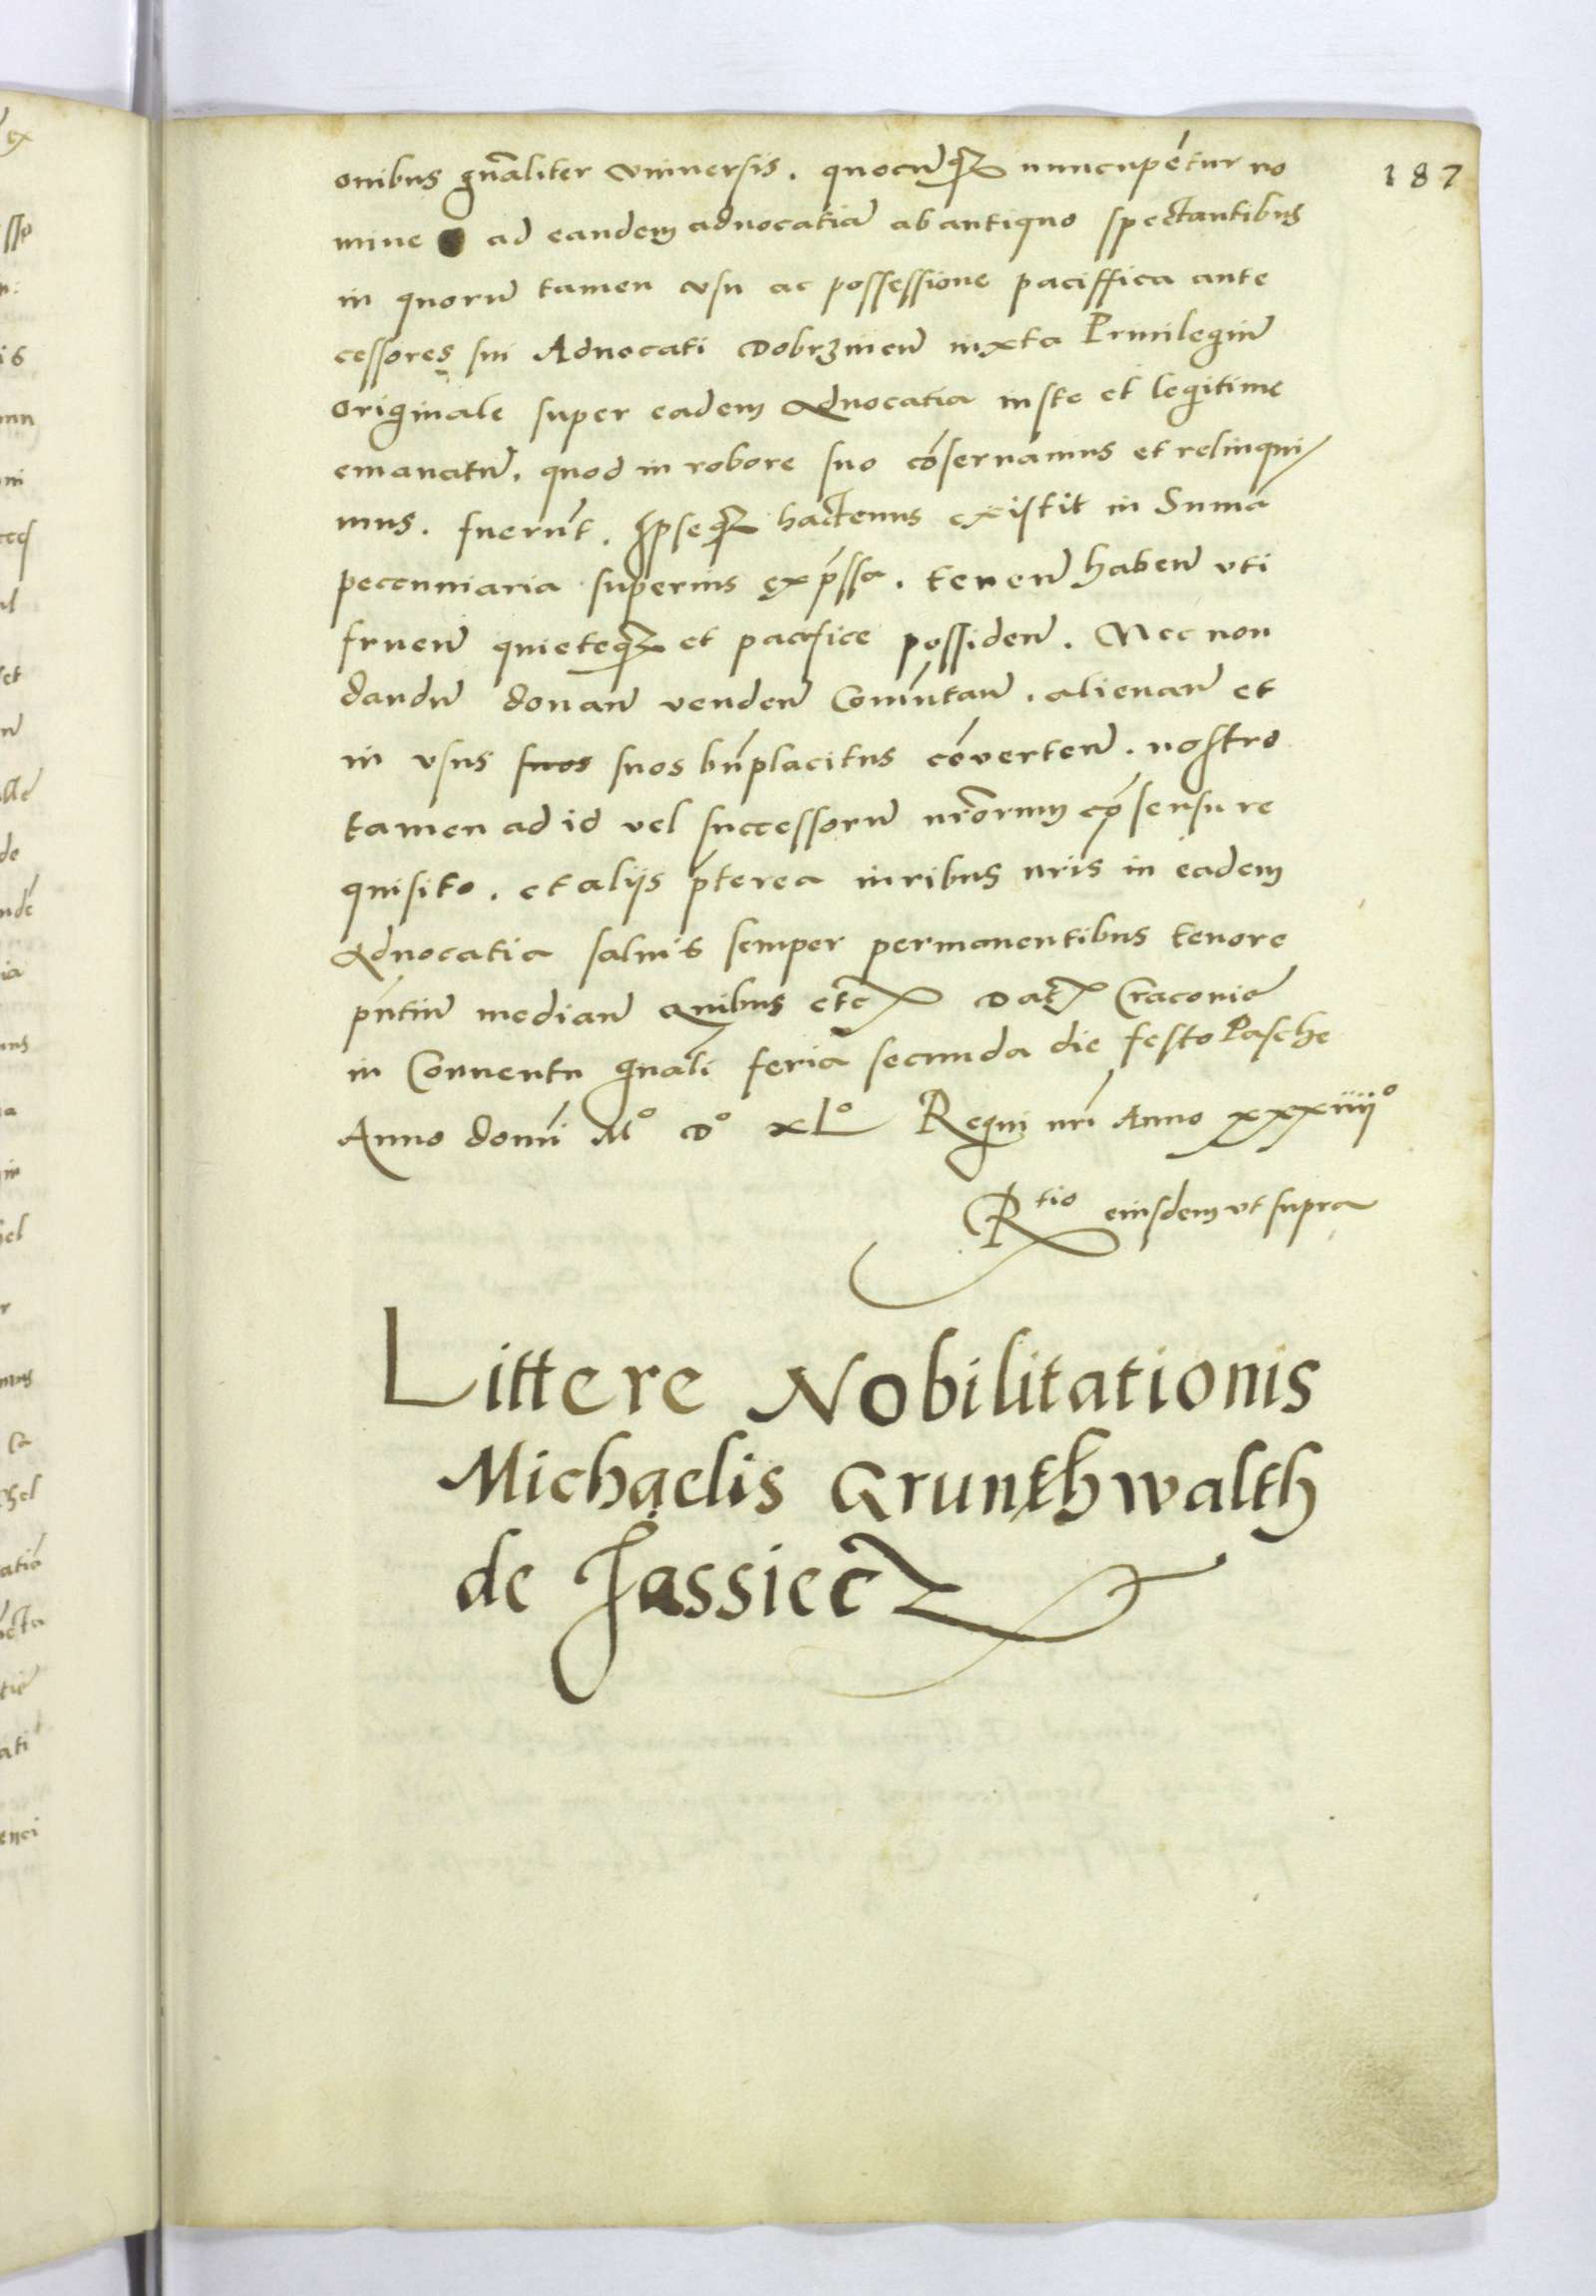 187
onibus gñaliter vniuersis. quocũqȝ nuncupẽtur no
mine ad eandem aduocatiã ab antiquo spectantibus
in quorũ tamen vsu ac possessione paciffica ante
cessores sui Aduocati Dobrzinień iuxta Priuilegiũ
originale super eadem Aduocatia iuste et legitime
emanatũ. quod in robore suo cõseruamus et relinqui
mus. fuerũt. Ipseqȝ hactenus existit in Sumã
pecunniaria superius exp̃ssa. tenen̄ haben̄ vti
fruen̄ quieteqȝ et pacifice possiden̄. Nec non
dandũ donan̄ venden̄ Com̃utan̄. alienan̄ et
in vsus suos suos bñplacitus cõuerten̄. nostro
tamen ad id vel successorũ nr̃orum cõsensu re
quisito. et aliis p̃terea iuribus nr̃is in eadem
Aduocatia saluis semper permanentibus tenore
pñtiũ median̄ Quibus etc Dat Cracouiẽ
in Conuentu gñali feria secunda die festo Pasche
Anno domi M° D° xL° Regni nr̃i Anno xxxiiii°
Rtio eiusdem vt supra
Littere Nobilitationis
Michaelis Grunthwalth
de Jassiecz